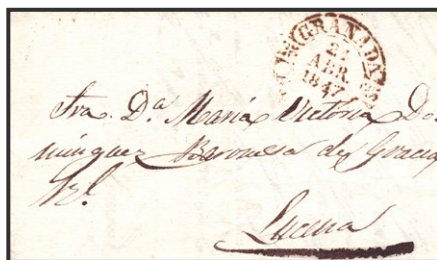 GRANADA
21
ABR
1847
Sra. Dª María Victoria Do
minguez Baronesa de Gracia
Rl.
Lucena